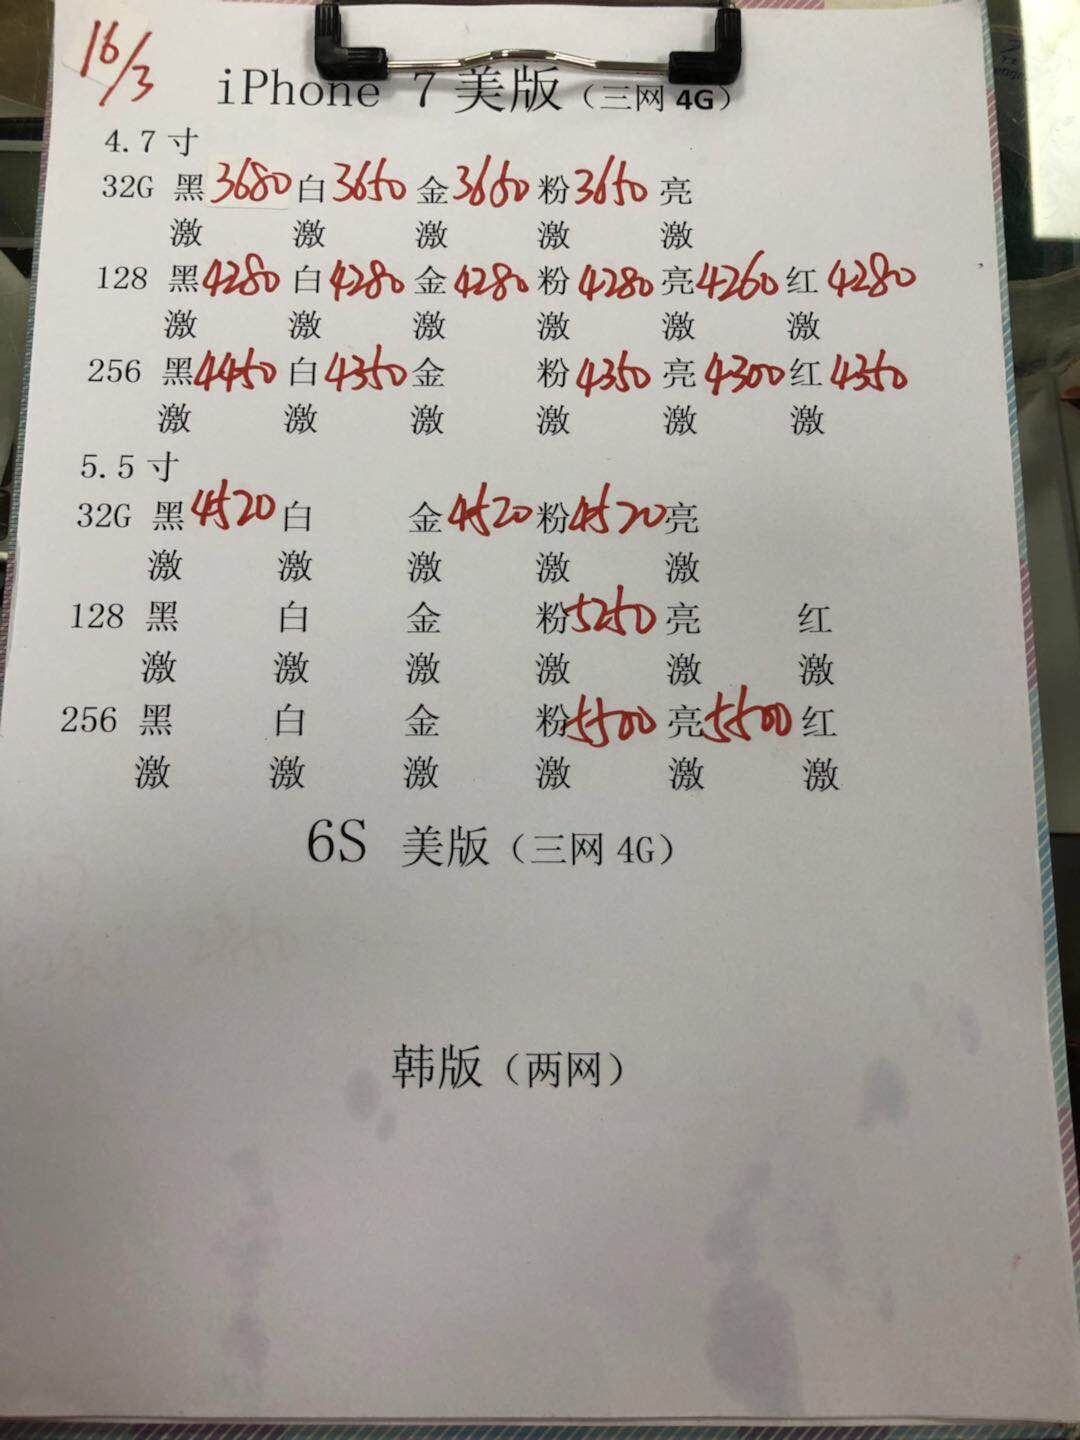 16/3
iPhone 7 美版（三网 4G）
4.7 寸
32G 黑 3680 白 3650 金 3650 粉 3650 亮
激 激 激 激 激
128 黑 4280 白 4280 金 4280 粉 4280 亮 4260 红 4280
激 激 激 激 激 激
256 黑 4450 白 4350 金 粉 4350 亮 4300 红 4350
激 激 激 激 激 激
5.5 寸
32G 黑 4520 白 金 4520 粉 4520 亮
激 激 激 激 激
128 黑 白 金 粉 5250 亮 红
激 激 激 激 激 激
256 黑 白 金 粉 5500 亮 5500 红
激 激 激 激 激 激
6S 美版（三网 4G）
韩版（两网）